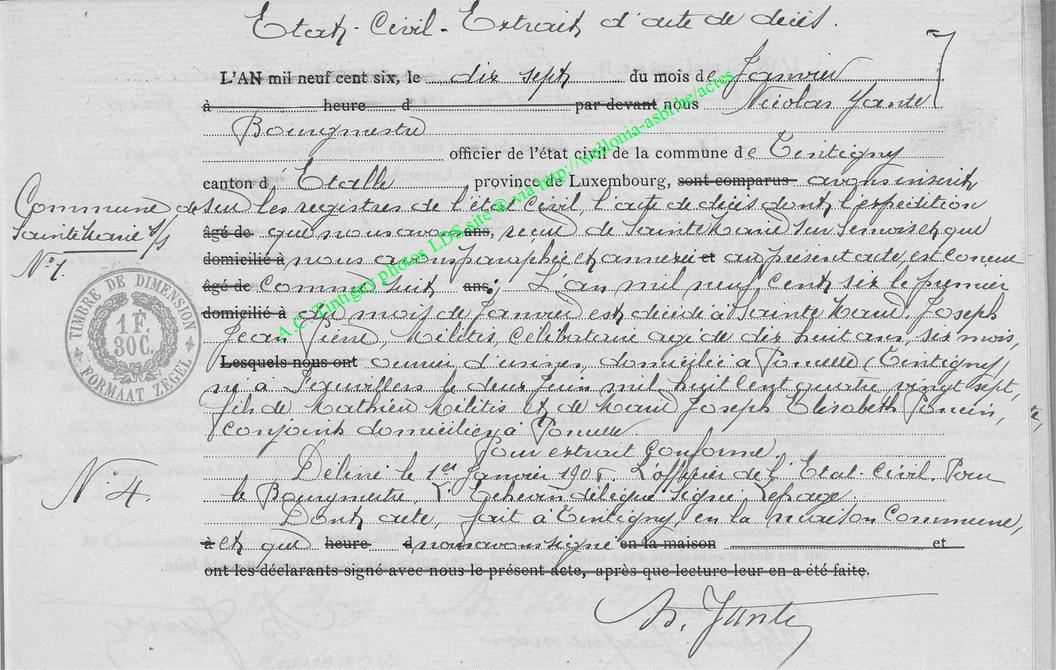 Etat-Civil-Extrait d'acte de décès.
L'AN mil neuf cent six, le dix sept du mois de Janvier
à heure d par devant nous Nicolas Jante
Bourgmestre
officier de l'état civil de la commune de Tintigny
canton d'Etalle province de Luxembourg, sont comparus avons inscrit
Commune de
Sainte Marie s/s
N° 1.
sur les registres de l'état civil, l'acte de décès dont l'expédition
âgé de que nous avons ans, reçue de Sainte Marie sur Semois et que
domicilié à nous avons paraphée et annexée et au présent acte, est conçue
âgé de comme suit ans; L'an mil neuf cent six le premier
domicilié à du mois de Janvier est décédé à Sainte Marie Joseph
Jean Pierre, Militis, célibataire âgé de dix huit ans, six mois,
Lesquels nous ont ouvrier d'usines, domicilié à Poncelle (Tintigny)
né à le deux Juin mil huit cent quatre vingt sept,
fils de Mathieu Militis et de Marie Joseph Elisabeth Poncin,
conjoints domiciliés à Poncelle
Pour extrait conforme.
Délivré le 1er Janvier 1906 L'officier de l'Etat-Civil. Pour
le Bourgmestre, L'Echevin délégué signé Lepage.
N° 4.
Dont acte, fait à Tintigny, en la maison Commune,
à et que heure d nous avons signé en la maison et
ont les déclarants signé avec nous le présent acte, après que lecture leur en a été faite.
N. Jante
TIMBRE DE DIMENSION
1 F.
30 C.
FORMAAT ZEGEL
A.C. Tintigny photos LDS site @ via http://wallonia-asbl.be/actes